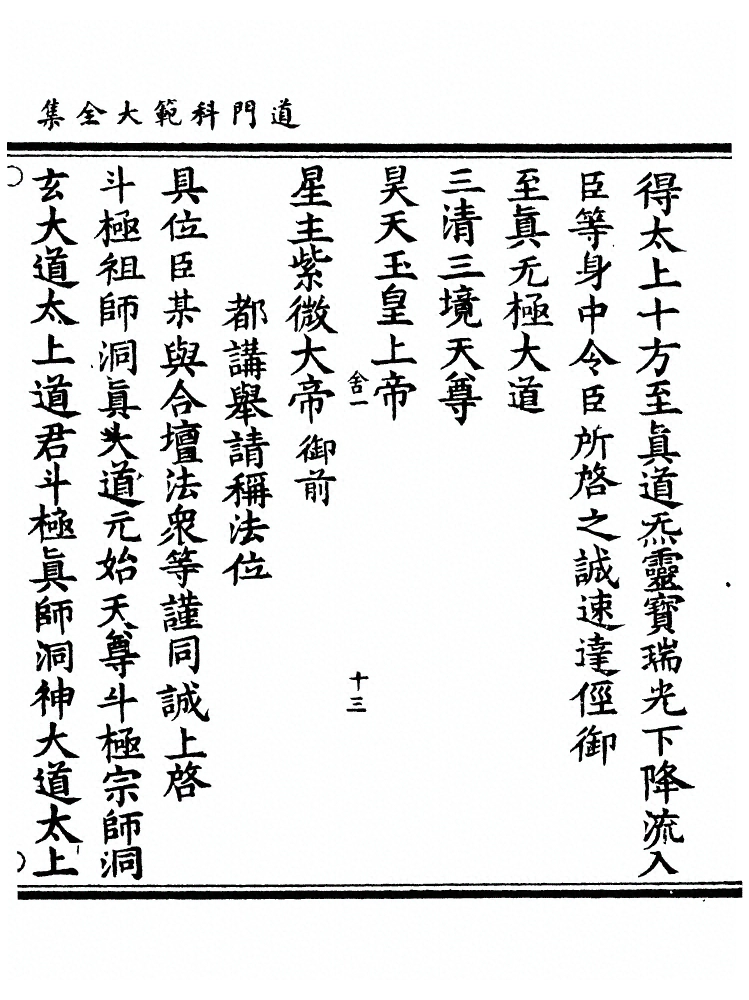 道門科範大全集
得太上十方至眞道炁靈寶瑞光下降流入
臣等身中令臣所啓之誠速達徑御
至眞无極大道
三清三境天尊
昊天玉皇上帝
舍一
十三
星主紫微大帝御前
都講舉請稱法位
具位臣某與合壇法衆等謹同誠上啓
斗極祖師洞眞大道元始天尊斗極宗師洞
玄大道太上道君斗極眞師洞神大道太上